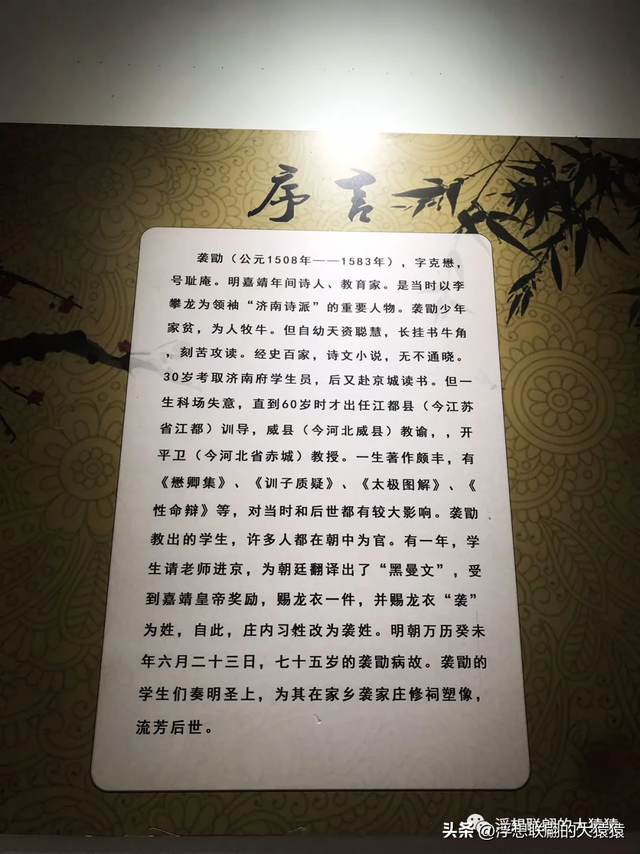 序言
袭勖（公元1508年——1583年），字克懋，
号耻庵。明嘉靖年间诗人、教育家。是当时以李
攀龙为领袖“济南诗派”的重要人物。袭勖少年
家贫，为人牧牛。但自幼天资聪慧，长挂书牛角
，刻苦攻读。经史百家，诗文小说，无不通晓。
30岁考取济南府学生员，后又赴京城读书。但一
生科场失意，直到60岁时才出任江都县（今江苏
省江都）训导，威县（今河北威县）教谕，，开
平卫（今河北省赤城）教授。一生著作颇丰，有
《懋卿集》、《训子质疑》、《太极图解》、《
性命辩》等，对当时和后世都有较大影响。袭勖
教出的学生，许多人都在朝中为官。有一年，学
生请老师进京，为朝廷翻译出了“黑曼文”，受
到嘉靖皇帝奖励，赐龙衣一件，并赐龙衣“袭”
为姓，自此，庄内习姓改为袭姓。明朝万历癸未
年六月二十三日，七十五岁的袭勖病故。袭勖的
学生们奏明圣上，为其在家乡袭家庄修祠塑像，
流芳后世。
浮想联翩的大猿猿
头条@浮想联翩的大猿猿